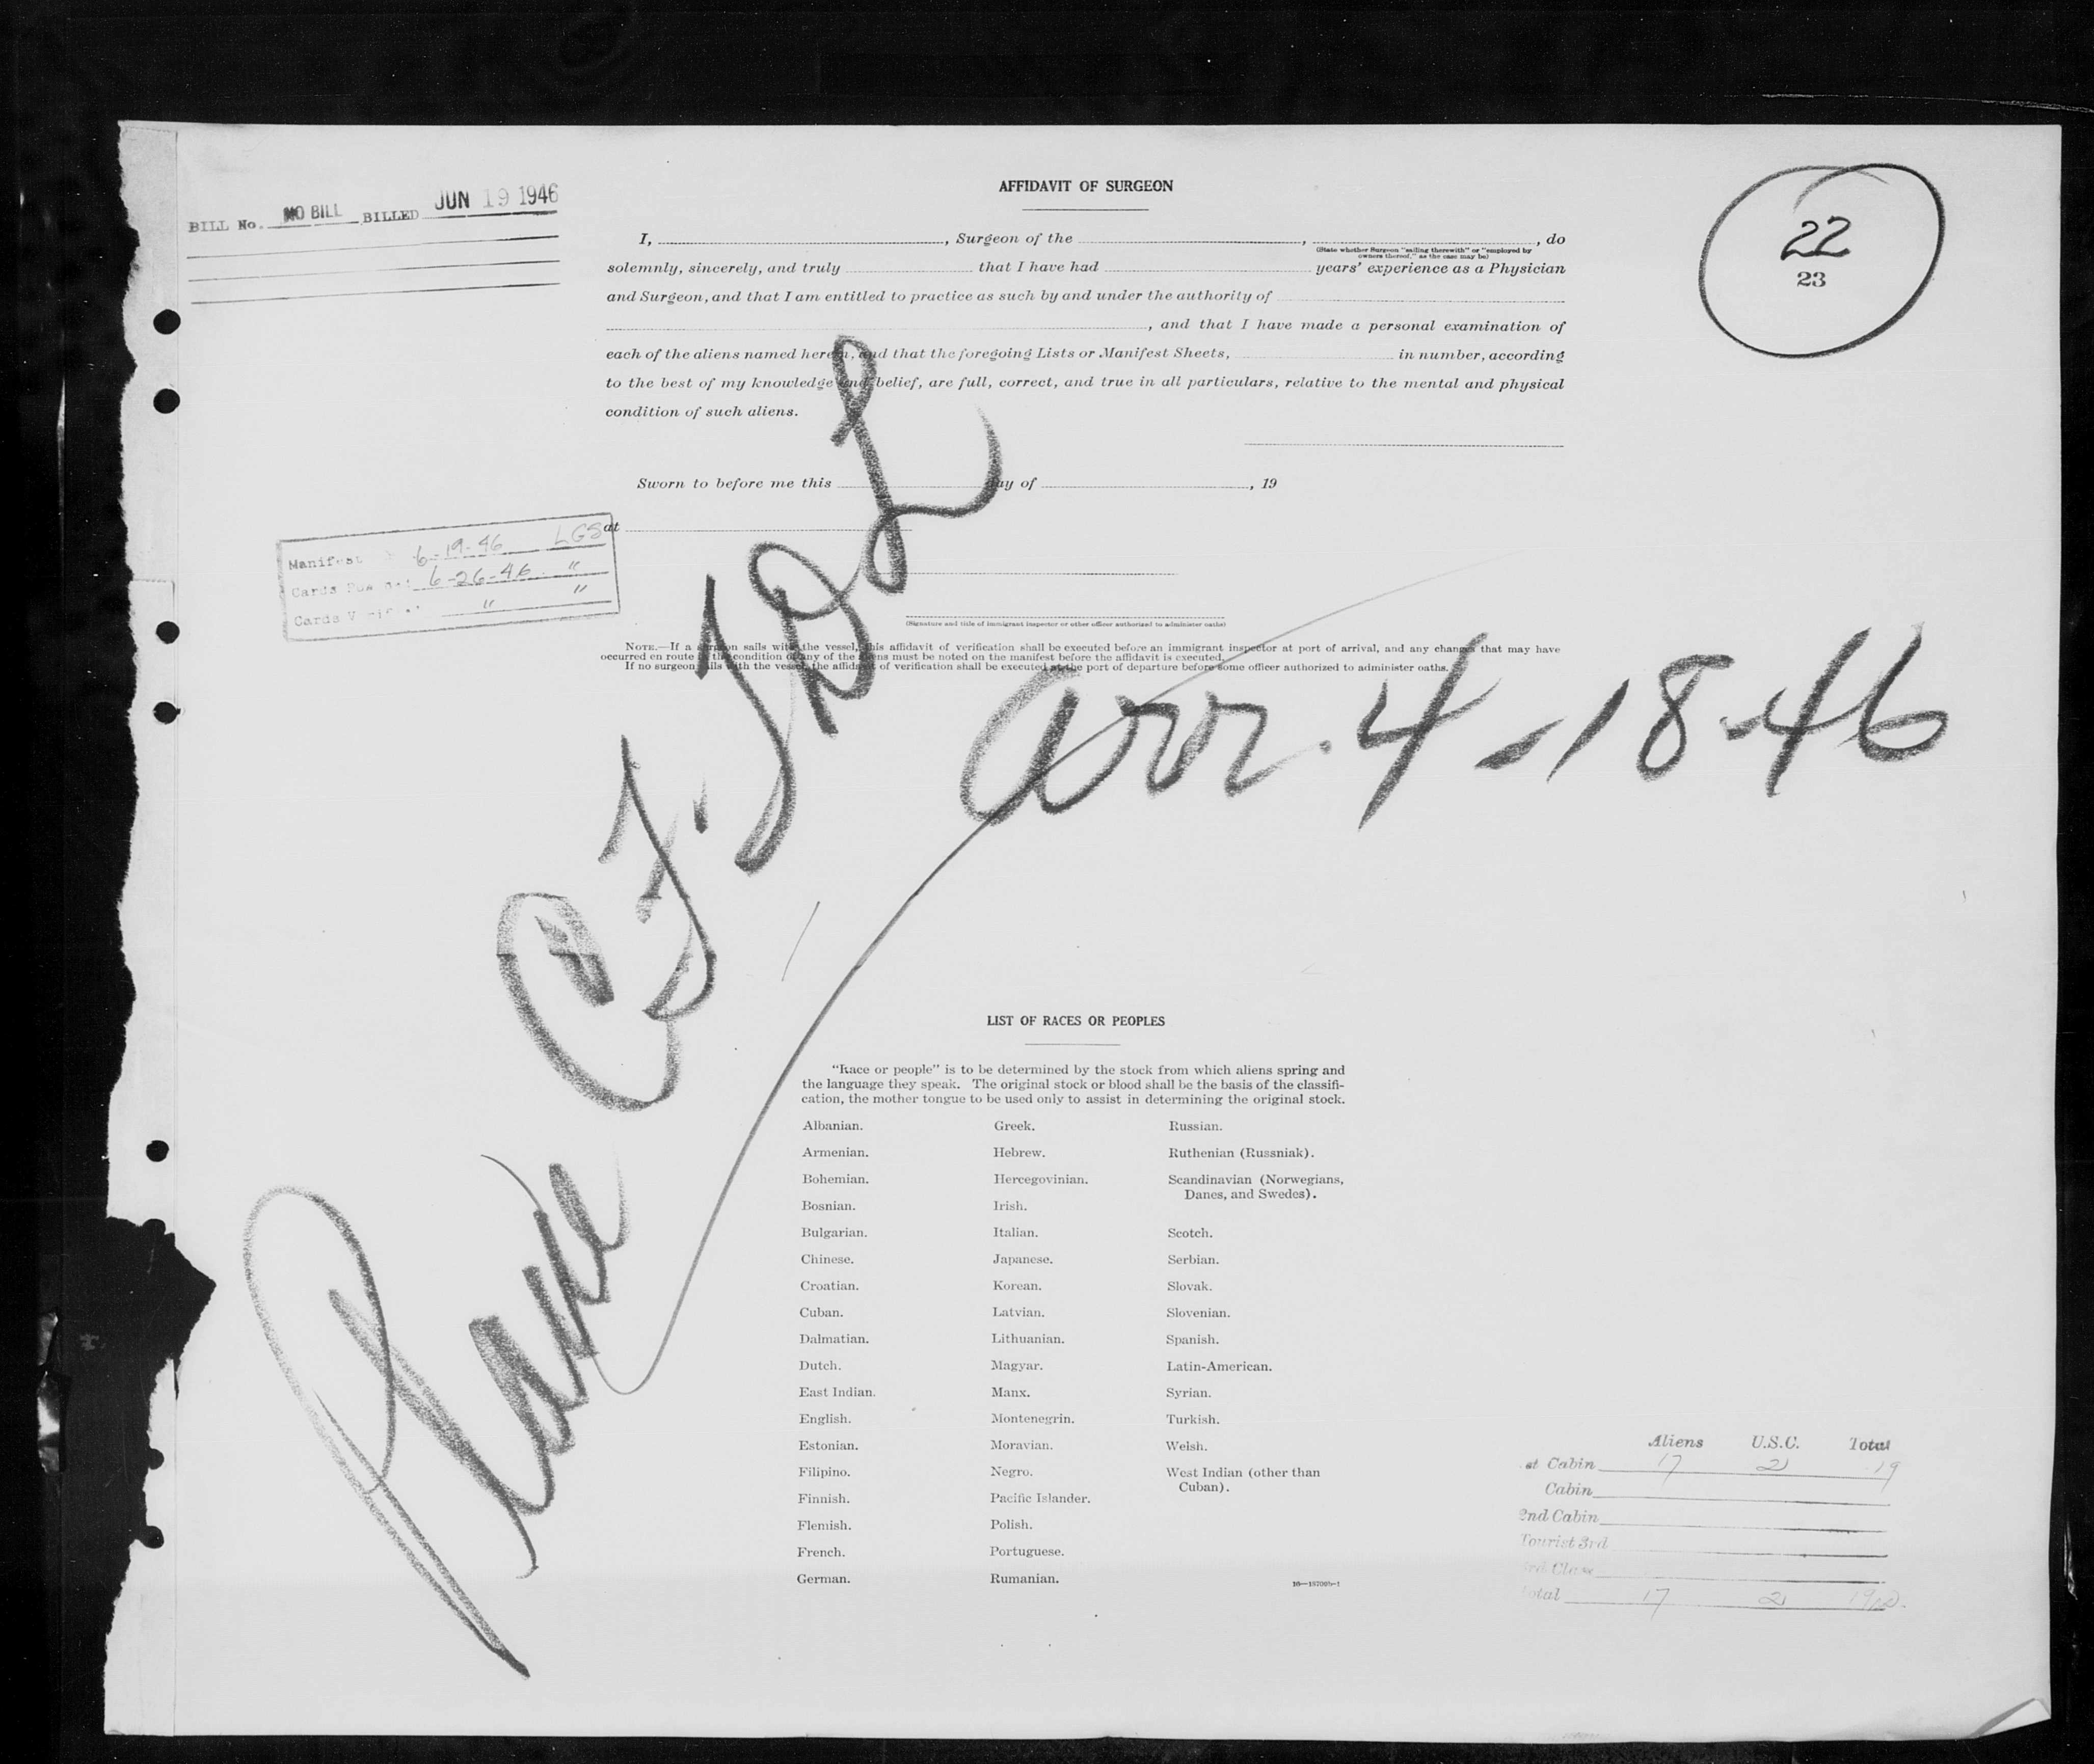 BILL No. NO BILL BILLED JUN 19 1946
AFFIDAVIT OF SURGEON
22
23
I, , Surgeon of the , , do
(State whether Surgeon "sailing therewith" or "employed by
owners thereof," as the case may be)
solemnly, sincerely, and truly that I have had years' experience as a Physician
and Surgeon, and that I am entitled to practice as such by and under the authority of
, and that I have made a personal examination of
each of the aliens named herein, and that the foregoing Lists or Manifest Sheets, in number, according
to the best of my knowledge and belief, are full, correct, and true in all particulars, relative to the mental and physical
condition of such aliens.
Sworn to before me this day of , 19
at
Manifest 6-19-46 LGS
Cards 6-26-46 "
Cards " "
(Signature and title of immigrant inspector or other officer authorized to administer oaths)
NOTE.—If a surgeon sails with the vessel, this affidavit of verification shall be executed before an immigrant inspector at port of arrival, and any changes that may have
occurred en route in the condition of any of the aliens must be noted on the manifest before the affidavit is executed.
If no surgeon sails with the vessel, the affidavit of verification shall be executed at the port of departure before some officer authorized to administer oaths.
Plane
arr. 4-18-46
LIST OF RACES OR PEOPLES
"Race or people" is to be determined by the stock from which aliens spring and
the language they speak. The original stock or blood shall be the basis of the classifi-
cation, the mother tongue to be used only to assist in determining the original stock.
Albanian. Greek. Russian.
Armenian. Hebrew. Ruthenian (Russniak).
Bohemian. Hercegovinian. Scandinavian (Norwegians,
Danes, and Swedes).
Bosnian. Irish.
Bulgarian. Italian. Scotch.
Chinese. Japanese. Serbian.
Croatian. Korean. Slovak.
Cuban. Latvian. Slovenian.
Dalmatian. Lithuanian. Spanish.
Dutch. Magyar. Latin-American.
East Indian. Manx. Syrian.
English. Montenegrin. Turkish.
Estonian. Moravian. Welsh.
Filipino. Negro. West Indian (other than
Cuban).
Finnish. Pacific Islander.
Flemish. Polish.
French. Portuguese.
German. Rumanian.
Aliens U.S.C. Total
st Cabin 17 2 19
Cabin
2nd Cabin
Tourist 3rd
3rd Class
Total 17 2